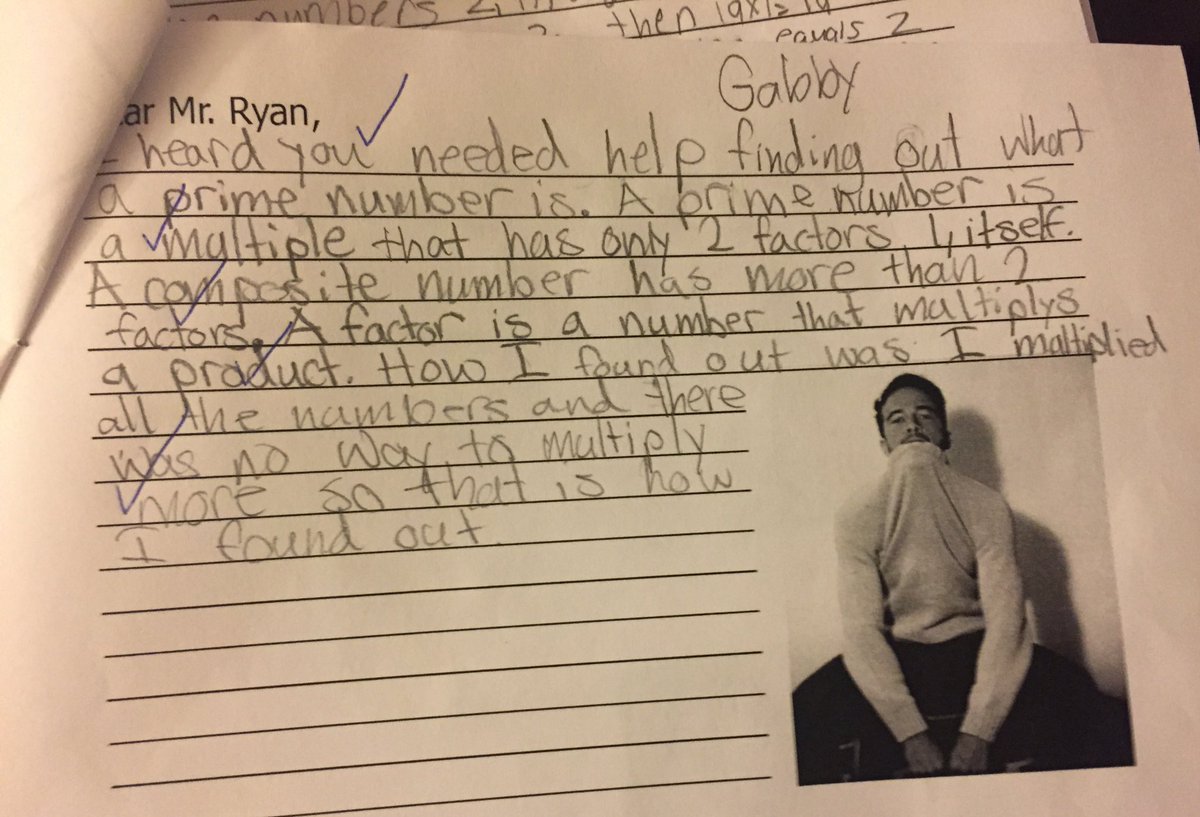 numbers 2,
then 19x1=19
equals 2
Gabby
ar Mr. Ryan,
heard you needed help finding out what
a prime number is. A prime number is
a multiple that has only 2 factors, 1, itself.
A composite number has more than 2
factors. A factor is a number that multiplys
a product. How I found out was I maltiplied
all the numbers and there
was no way to multiply
more so that is how
I found out.